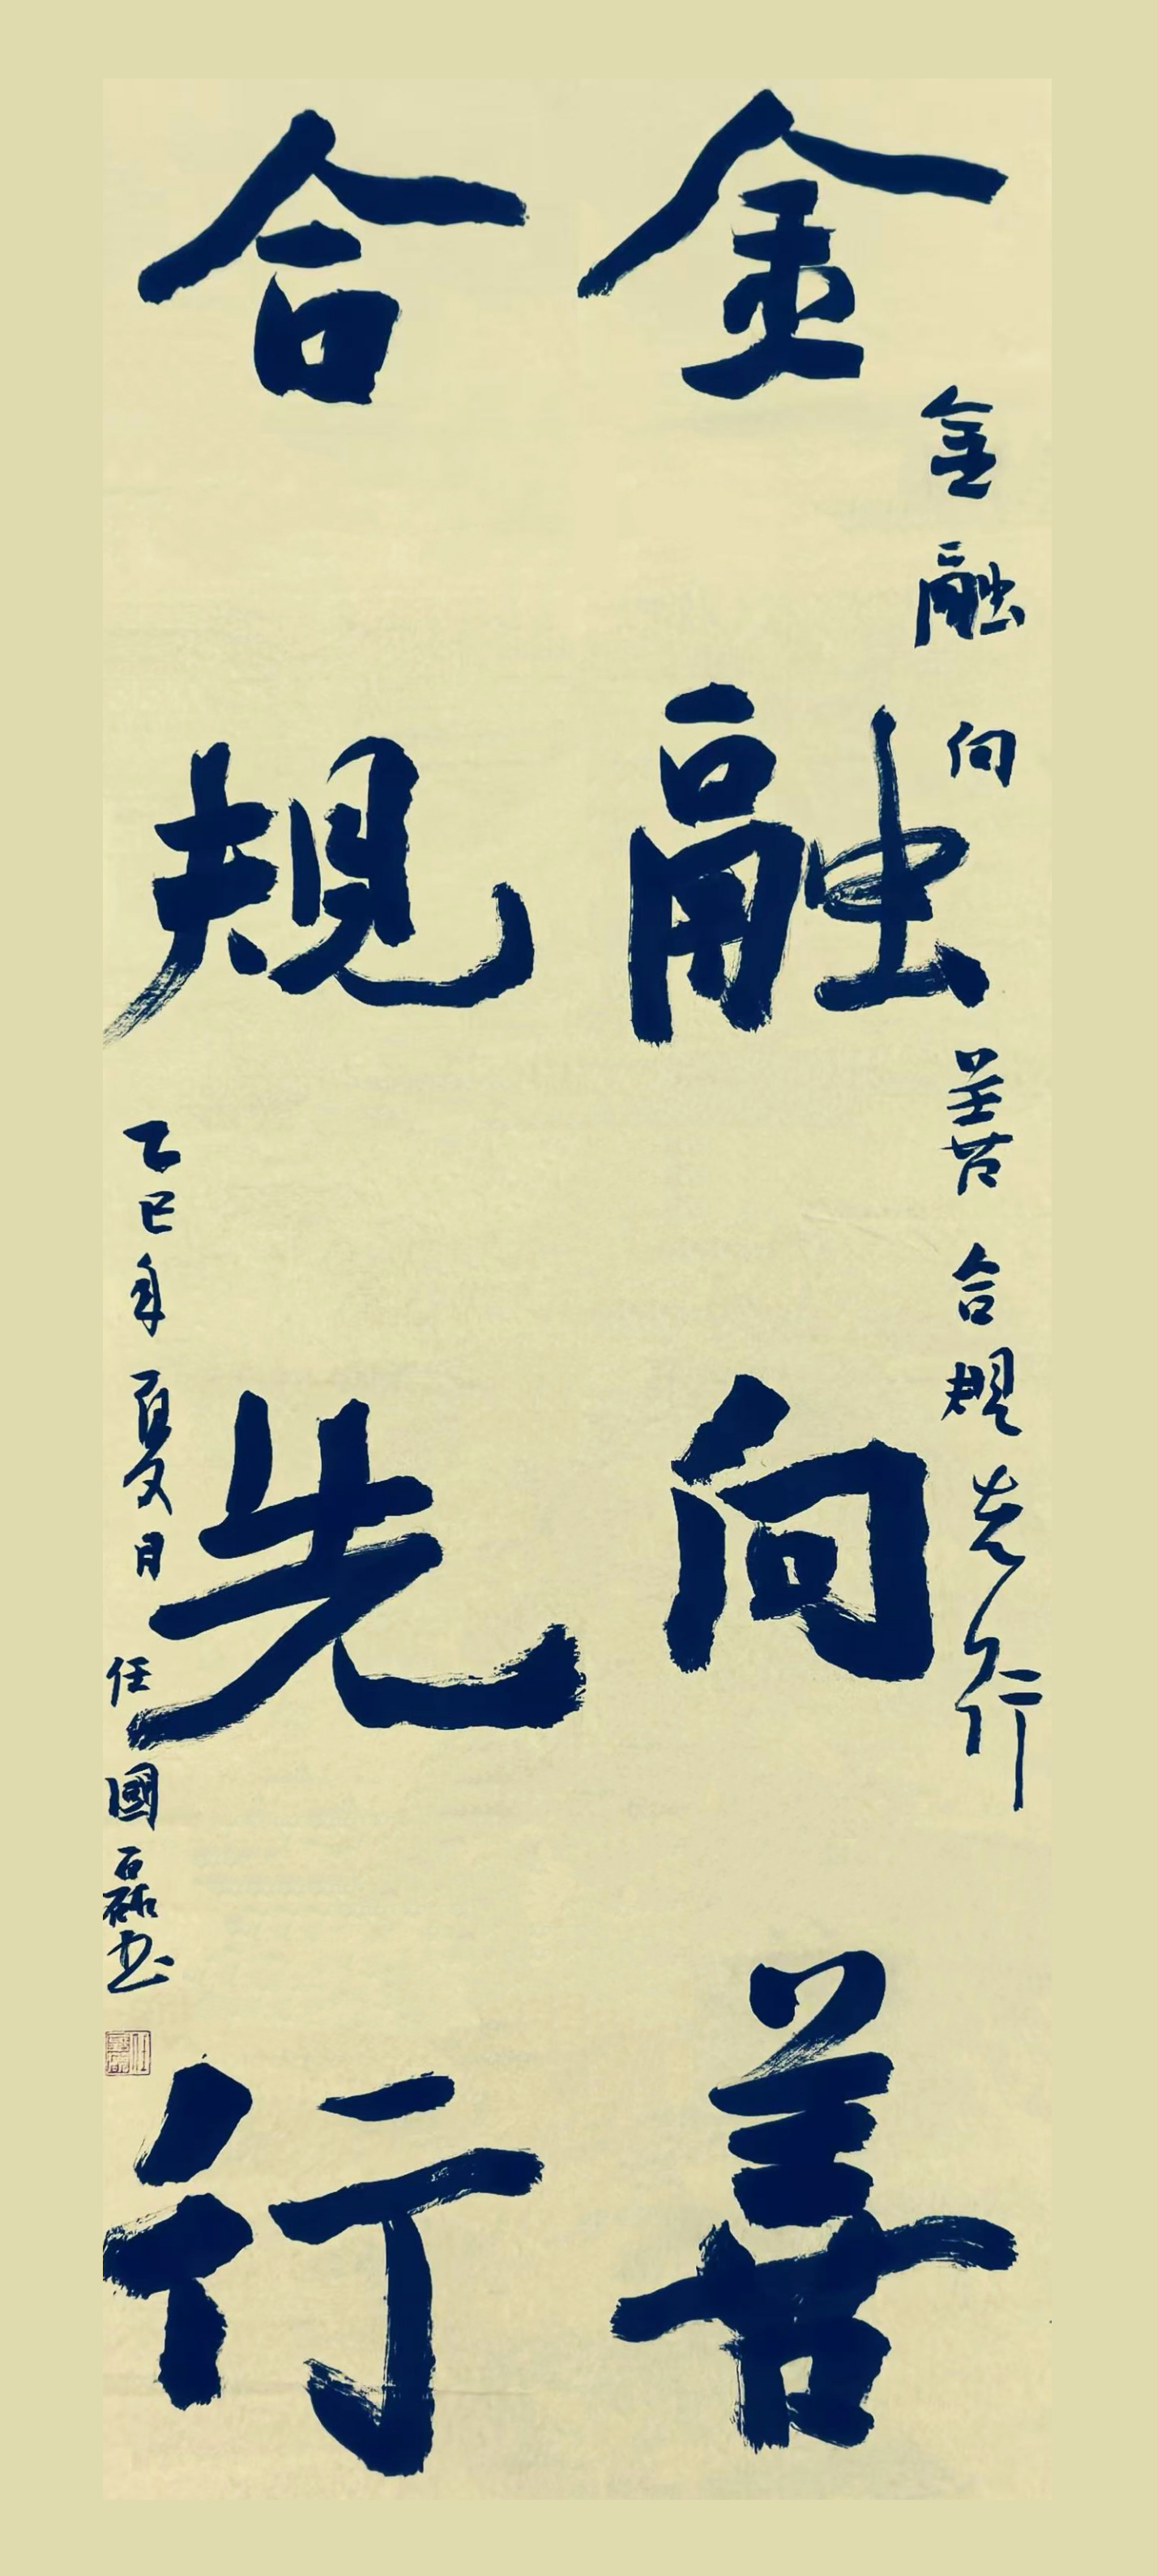 金融向善
金融向善合規先行
合規先行
乙巳年夏月任國磊书